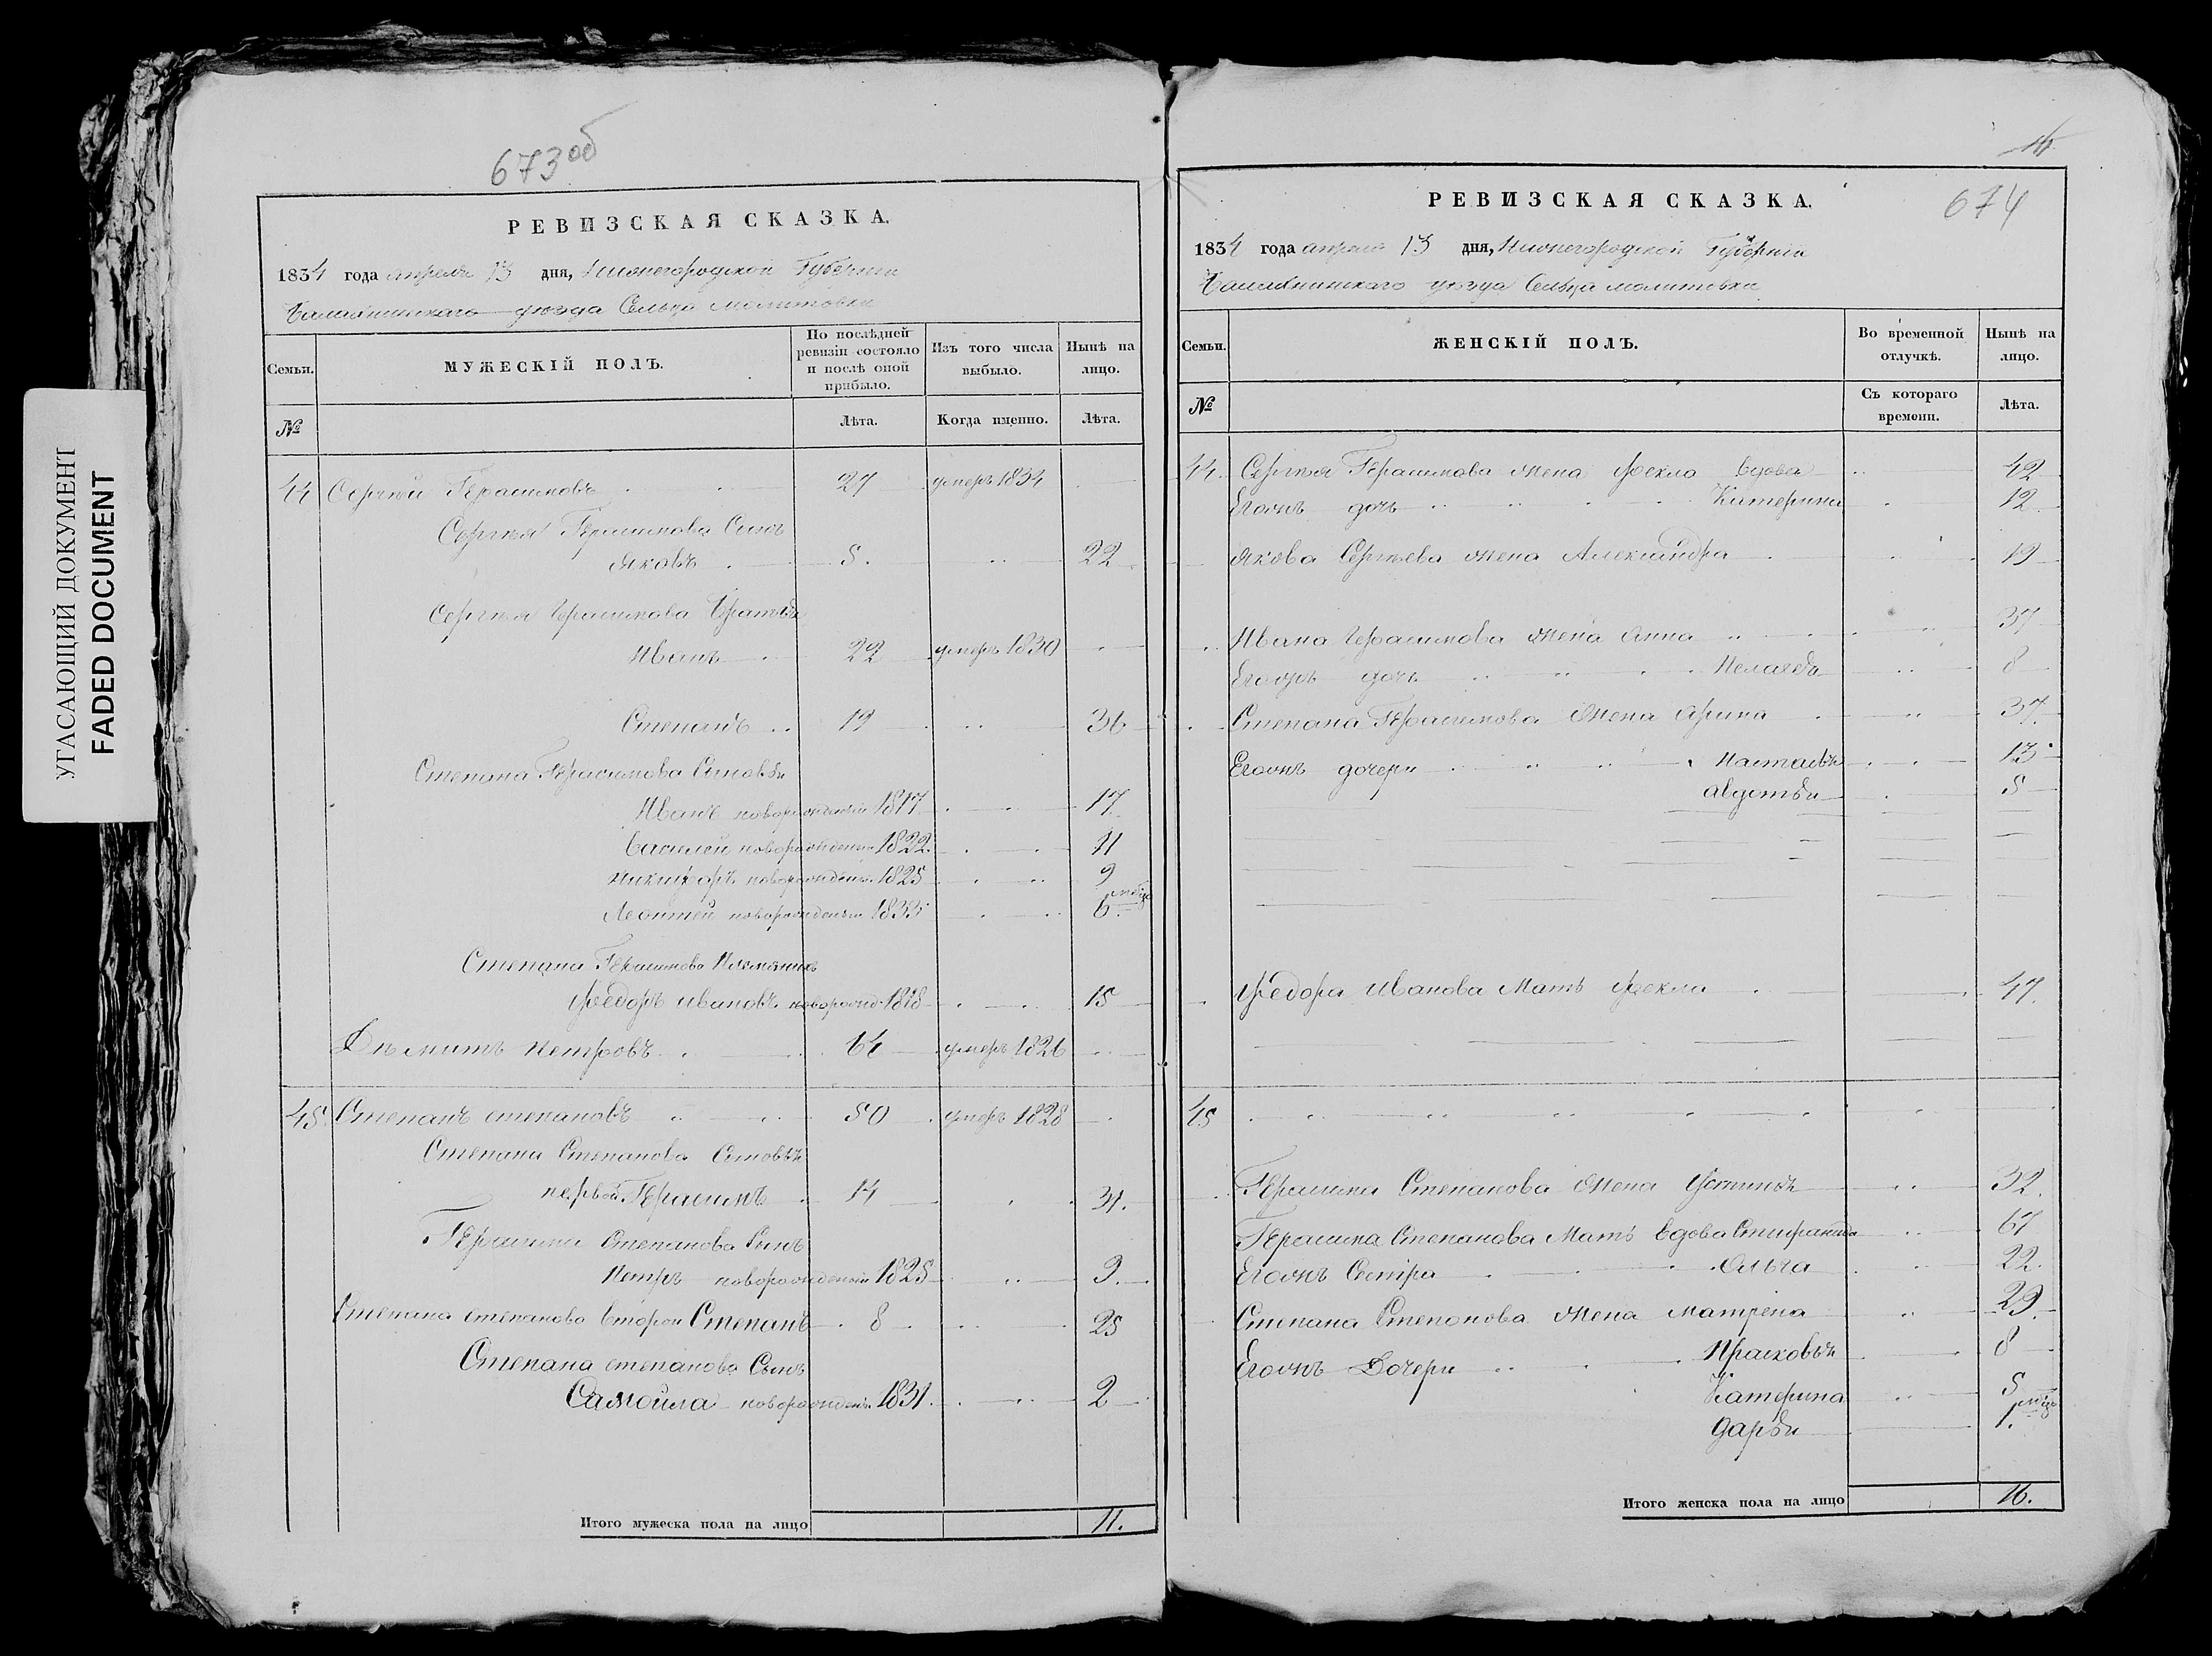 УГАСАЮЩИЙ ДОКУМЕНТ
FADED DOCUMENT
673об
РЕВИЗСКАЯ СКАЗКА.
1834 года апреля 13 дня, Нижегородской Губернии
Балахнинскаго уѣзда Сельца молитовки
Семьи. МУЖЕСКІЙ ПОЛЪ. По послѣдней ревизіи состояло и послѣ оной прибыло. Изъ того числа выбыло. Нынѣ на лицо.
№ Лѣта. Когда именно. Лѣта.
44 Сергѣй Герасимовъ 27 умеръ 1834
Сергѣя Герасимова Сынъ
Яковъ 5. 22
Сергѣя Герасимова Братья
Иванъ 22 умеръ 1830
Степанъ 19 36
Степана Герасимова Сыновья
Иванъ новорожденный 1817 17
Василей новорожденн 1822 11
Никифоръ новорожден. 1825 9
Леонтей новорожденн 1833 6. мѣся
Степана Герасимова Племянникъ
Федоръ Ивановъ новорожд. 1818 15
Демитъ Петровъ 64 умеръ 1826
45. Степанъ степановъ 50 умеръ 1828
Степана Степанова Сыновья
первой Герасимъ 14 31.
Герасима Степанова Сынъ
Петръ новорожденной 1825 9.
Степана степанова второй Степанъ 8 25
Степана степанова Сынъ
Самойла новорожден. 1831. 2
Итого мужеска пола на лицо 11.
16
674
РЕВИЗСКАЯ СКАЗКА.
1834 года апреля 13 дня, Нижегородской Губерніи
Балахнинскаго уѣзда Сельца молитовки
Семьи. ЖЕНСКІЙ ПОЛЪ. Во временной отлучкѣ. Нынѣ на лицо.
№ Съ котораго времени. Лѣта.
44. Сергѣя Герасимова жена Фекла вдова 42
Егожъ дочь Катерина 12
Якова Сергѣева жена Александра 19
Ивана Герасимова жена Анна 37
Егожъ дочь Пелагея 8
Степана Герасимова жена Арина 37.
Егожъ дочери Настасья 13
Авдотья 5
Федора Иванова Мать Фекла 47.
45
Герасима Степанова жена Устинья 32.
Герасима Степанова Мать вдова 67
Егожъ Сестра Ольга 22.
Степана Степонова жена матрена 29.
Егожъ Дочери Прасковья 8
Катерина 5
Дарья 1. мѣся
Итого женска пола на лицо 16.